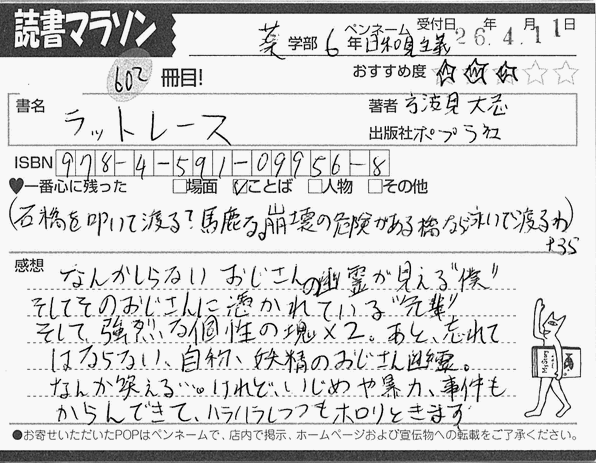 読書マラソン
602 冊目!
薬 学部 6 年 ペンネーム 日和見主義 受付日 26 年 4 月 11 日
おすすめ度 ☆☆☆☆☆
書名
ラットレース
著者 方波見 大志
出版社 ポプラ社
ISBN 978-4-591-09956-8
♥一番心に残った □場面 ☑ことば □人物 □その他
(石橋を叩いて渡る?馬鹿な。崩壊の危険がある橋なら泳いで渡るわ)
P35
感想
なんかしらない おじさんの幽霊が見える"僕"
そしてそのおじさんに憑かれている"先輩"
そして、強烈な個性の塊×2。あと、忘れて
はならない、自称、妖精のおじさん幽霊。
なんか笑える…。けれど、いじめや暴力、事件も
からんできて、ハラハラしつつもホロリときます
●お寄せいただいたPOPはペンネームで、店内で掲示、ホームページおよび宣伝物への転載をご了承ください。